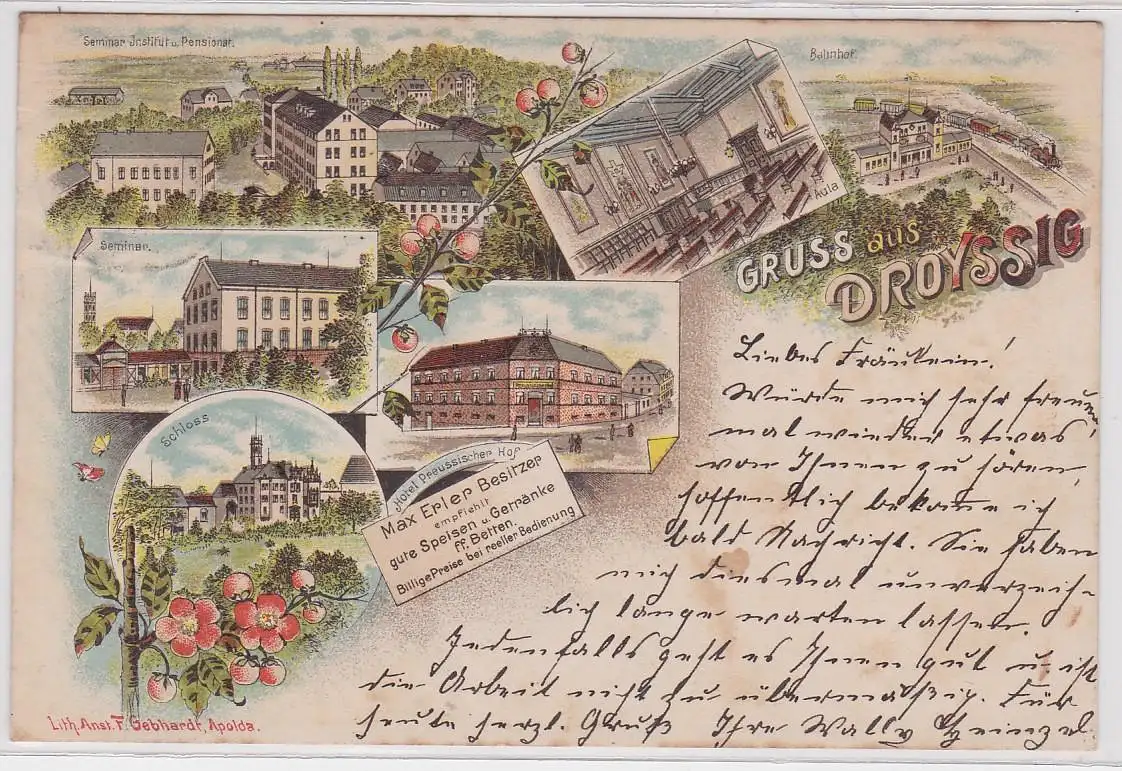 Seminar Institut u. Pensionat.
Bahnhof.
Aula
GRUSS aus
DROYSSIG
Seminar.
Schloss
Hotel Preussischer Hof
Max Erler Besitzer
empfiehlt
gute Speisen u. Getränke
ff. Betten.
Billige Preise bei reeller Bedienung
Liebes Fräulein!
Würde mich sehr freuen,
mal wieder etwas
von Ihnen zu hören,
hoffentlich bekome ich
bald Nachricht. Sie haben
mich diesmal unverzeich-
lich lange warten lassen.
Jedenfalls geht es Ihnen gut u. ist
die Arbeit nicht zu übermäßig. Für
heute herzl. Gruß Ihre Wally Heinzel
Lith. Anst. F. Gebhardt, Apolda.